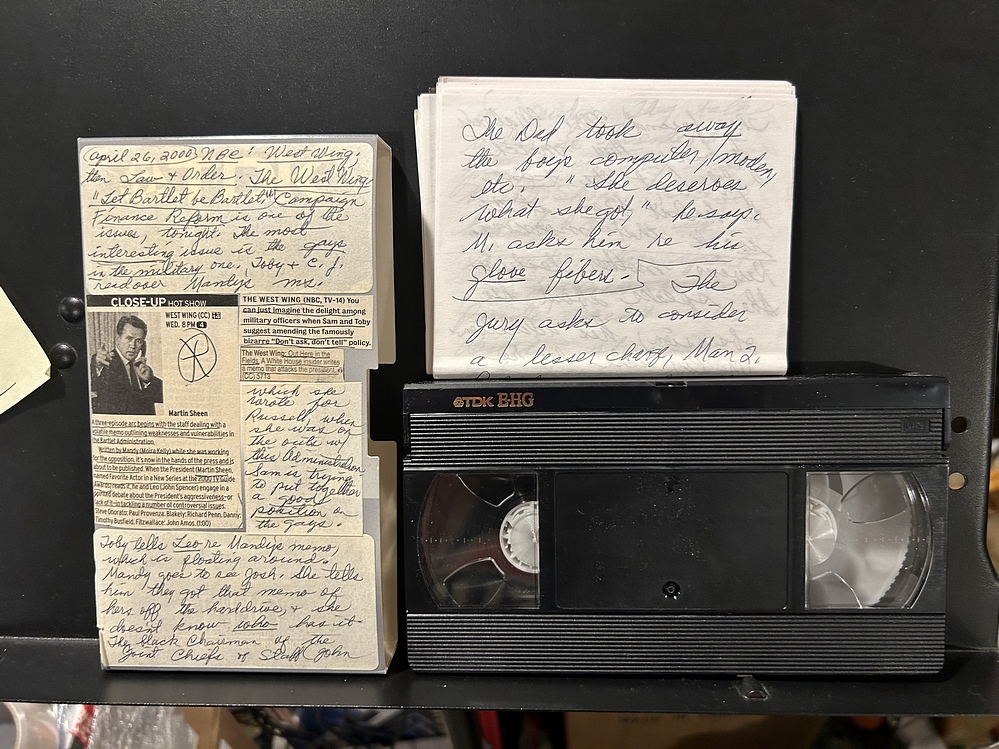 (april 26, 2000) NBC: West Wing,
then Law + Order. The West Wing
"Let Bartlet be Bartlet," Campaign
Finance Reform is one of the
issues, tonight. The most
interesting issue is the gays
in the military one. Toby + C.J.
read over Mandy's ms.
CLOSE-UP HOT SHOW
WEST WING (CC)
WED. 8 PM 4
Martin Sheen
A three-episode arc begins with the staff dealing with a
volatile memo outlining weaknesses and vulnerabilities in
the Bartlet Administration.
Written by Mandy (Moira Kelly) while she was working
for the opposition, it's now in the hands of the press and is
about to be published. When the President (Martin Sheen,
named Favorite Actor in a New Series at the 2000 TV Guide
Awards) reads it, he and Leo (John Spencer) engage in a
spirited debate about the President's aggressiveness—or
lack of it—in tackling a number of controversial issues.
Steve Onorato: Paul Provenza. Blakely: Richard Penn. Danny:
Timothy Busfield. Fitzwallace: John Amos. (1:00)
THE WEST WING (NBC, TV-14) You
can just imagine the delight among
military officers when Sam and Toby
suggest amending the famously
bizarre "Don't ask, don't tell" policy.
The West Wing; Out Here in the
Fields, A White House insider writes
a memo that attacks the president.
(CC) 5713
which she
wrote for
Russell, when
she was on
the outs w/
this Administration
Sam is trying
to put together
a good
position on
the gays.
Toby tells Leo re Mandy's memo,
which is floating around.
Mandy goes to see Josh. She tells
him they got that memo of
hers off the harddrive, + she
doesn't know who has it.
The black Chairman of the
Joint Chiefs of Staff (John
The Dad took away
the boy's computer, modem,
etc. "She deserves
what she got," he says.
M. asks him re his
glove fibers. The
jury asks to consider
a lesser charg, Man 2.
TDK E-HG